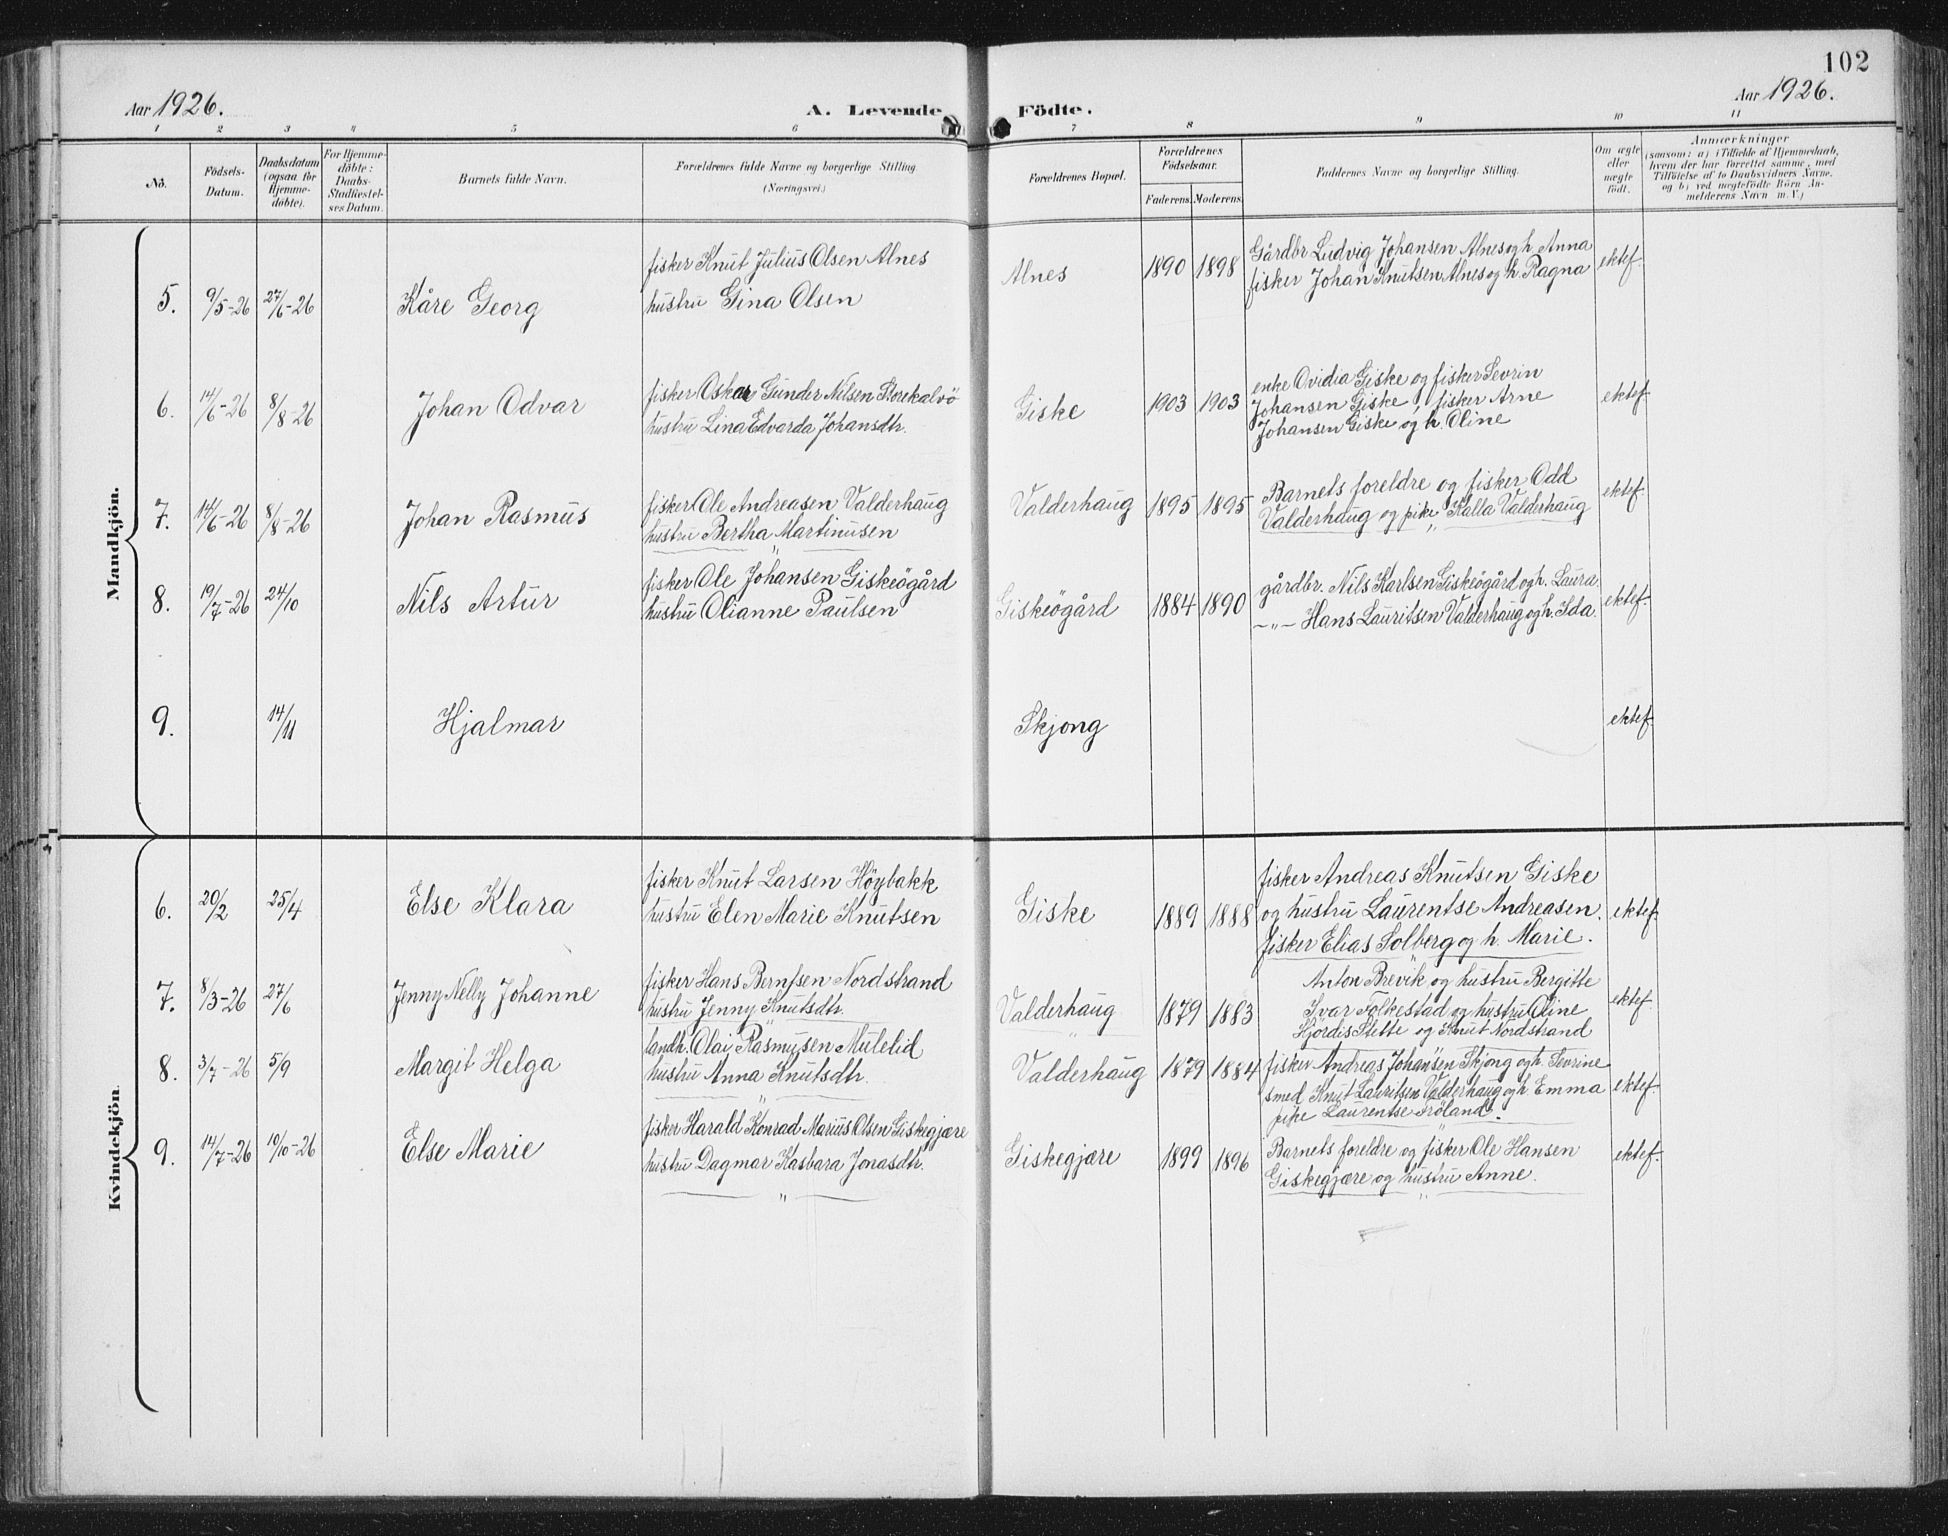 102
Aar 1926.
A. Levende Födte.
Aar 1926.
1 2 3 4 5 6 7 8 9 10 11
No.
Födsels-Datum.
Daabsdatum (ogsaa for Hjemme-döbte).
For Hjemme-döbte: Daabs-Stadfæstel-ses Datum.
Barnets fulde Navn.
Forældrenes fulde Navne og borgerlige Stilling.
(Næringsvei.)
Forældrenes Bopæl.
Forældrenes Födselsaar.
Faderens. Moderens.
Faddernes Navne og borgerlige Stilling.
Om ægte eller uægte födt.
Anmærkninger
(saasom: a) i Tilfælde af Hjemmedaab,
hvem der har forrettet samme, med
Tilföielse af to Daabsvidners Navne,
og b) ved uægtefödte Börn An-
melderens Navn m. V.)
Mandkjön.
fisker Knut Julius Olsen Alnes
5. 9/5-26 27/6-26 Kåre Georg hustru Gina Olsen
Alnes 1890 1898 Gårdbr Ludvig Johansen Alnes og h Anna ektef.
fisker Johan Knutsen Alnes og h. Ragna
fisker Oskar Gunder Nilsen Skrekalvö
6. 14/6-26 8/8-26 Johan Odvar hustru Lina Edvarda Johansdtr.
Giske 1903 1903 enke Ovidia Giske og fisker Sevrin ektef
Johansen Giske, fisker Arne
Johansen Giske og h. Oline
fisker Ole Andreasen Valderhaug
7. 14/6-26 8/8-26 Johan Rasmus hustru Bertha Martinusen
Valderhaug 1895 1895 Barnets foreldre og fisker Odd ektef
Valderhaug og pike Kalla Valderhaug
fisker Ole Johansen Giskeögård
8. 19/7-26 24/10 Nils Artur hustru Olianne Paulsen
Giskeögård 1884 1890 gårdbr. Nils Karlsen Giskeögård og h. Laura. ektef.
-"- Hans Lauritsen Valderhaug og h. Ida.
9. 14/11 Hjalmar Skjong ektef
Kvindekjön
fisker Knut Larsen Höybakk
6. 20/2 25/4 Else Klara hustru Elen Marie Knutsen
Giske 1889 1888 fisker Andreas Knutsen Giske
og hustru Laurentse Andreasen. ektef.
fisker Elias Solberg og h. Marie.
fisker Hans Berntsen Nordstrand
7. 8/3-26 27/6 Jenny Nelly Johanne hustru Jenny Knutsdtr.
Valderhaug 1879 1883 Anton Brevik og hustru Bergitte
Ivar Folkestad og hustru Oline ektef
Hjördis Slette og Knut Nordstrand
landh. Olai Rasmusen Mulelid
8. 3/7-26 5/9 Margit Helga hustru Anna Knutsdtr.
Valderhaug 1879 1884 fisker Andreas Johansen Skjong og h. Sevrine
smed Knut Lauritsen Valderhaug og h Emma ektef.
pike Laurentse Fröland.
fisker Harald Konrad Marius Olsen Giskegjære
9. 14/7-26 10/10-26 Else Marie hustru Dagmar Kasbara Jonasdtr.
Giskegjære 1899 1896 Barnets foreldre og fisker Ole Hansen ektef.
Giskegjære og hustru Anne.